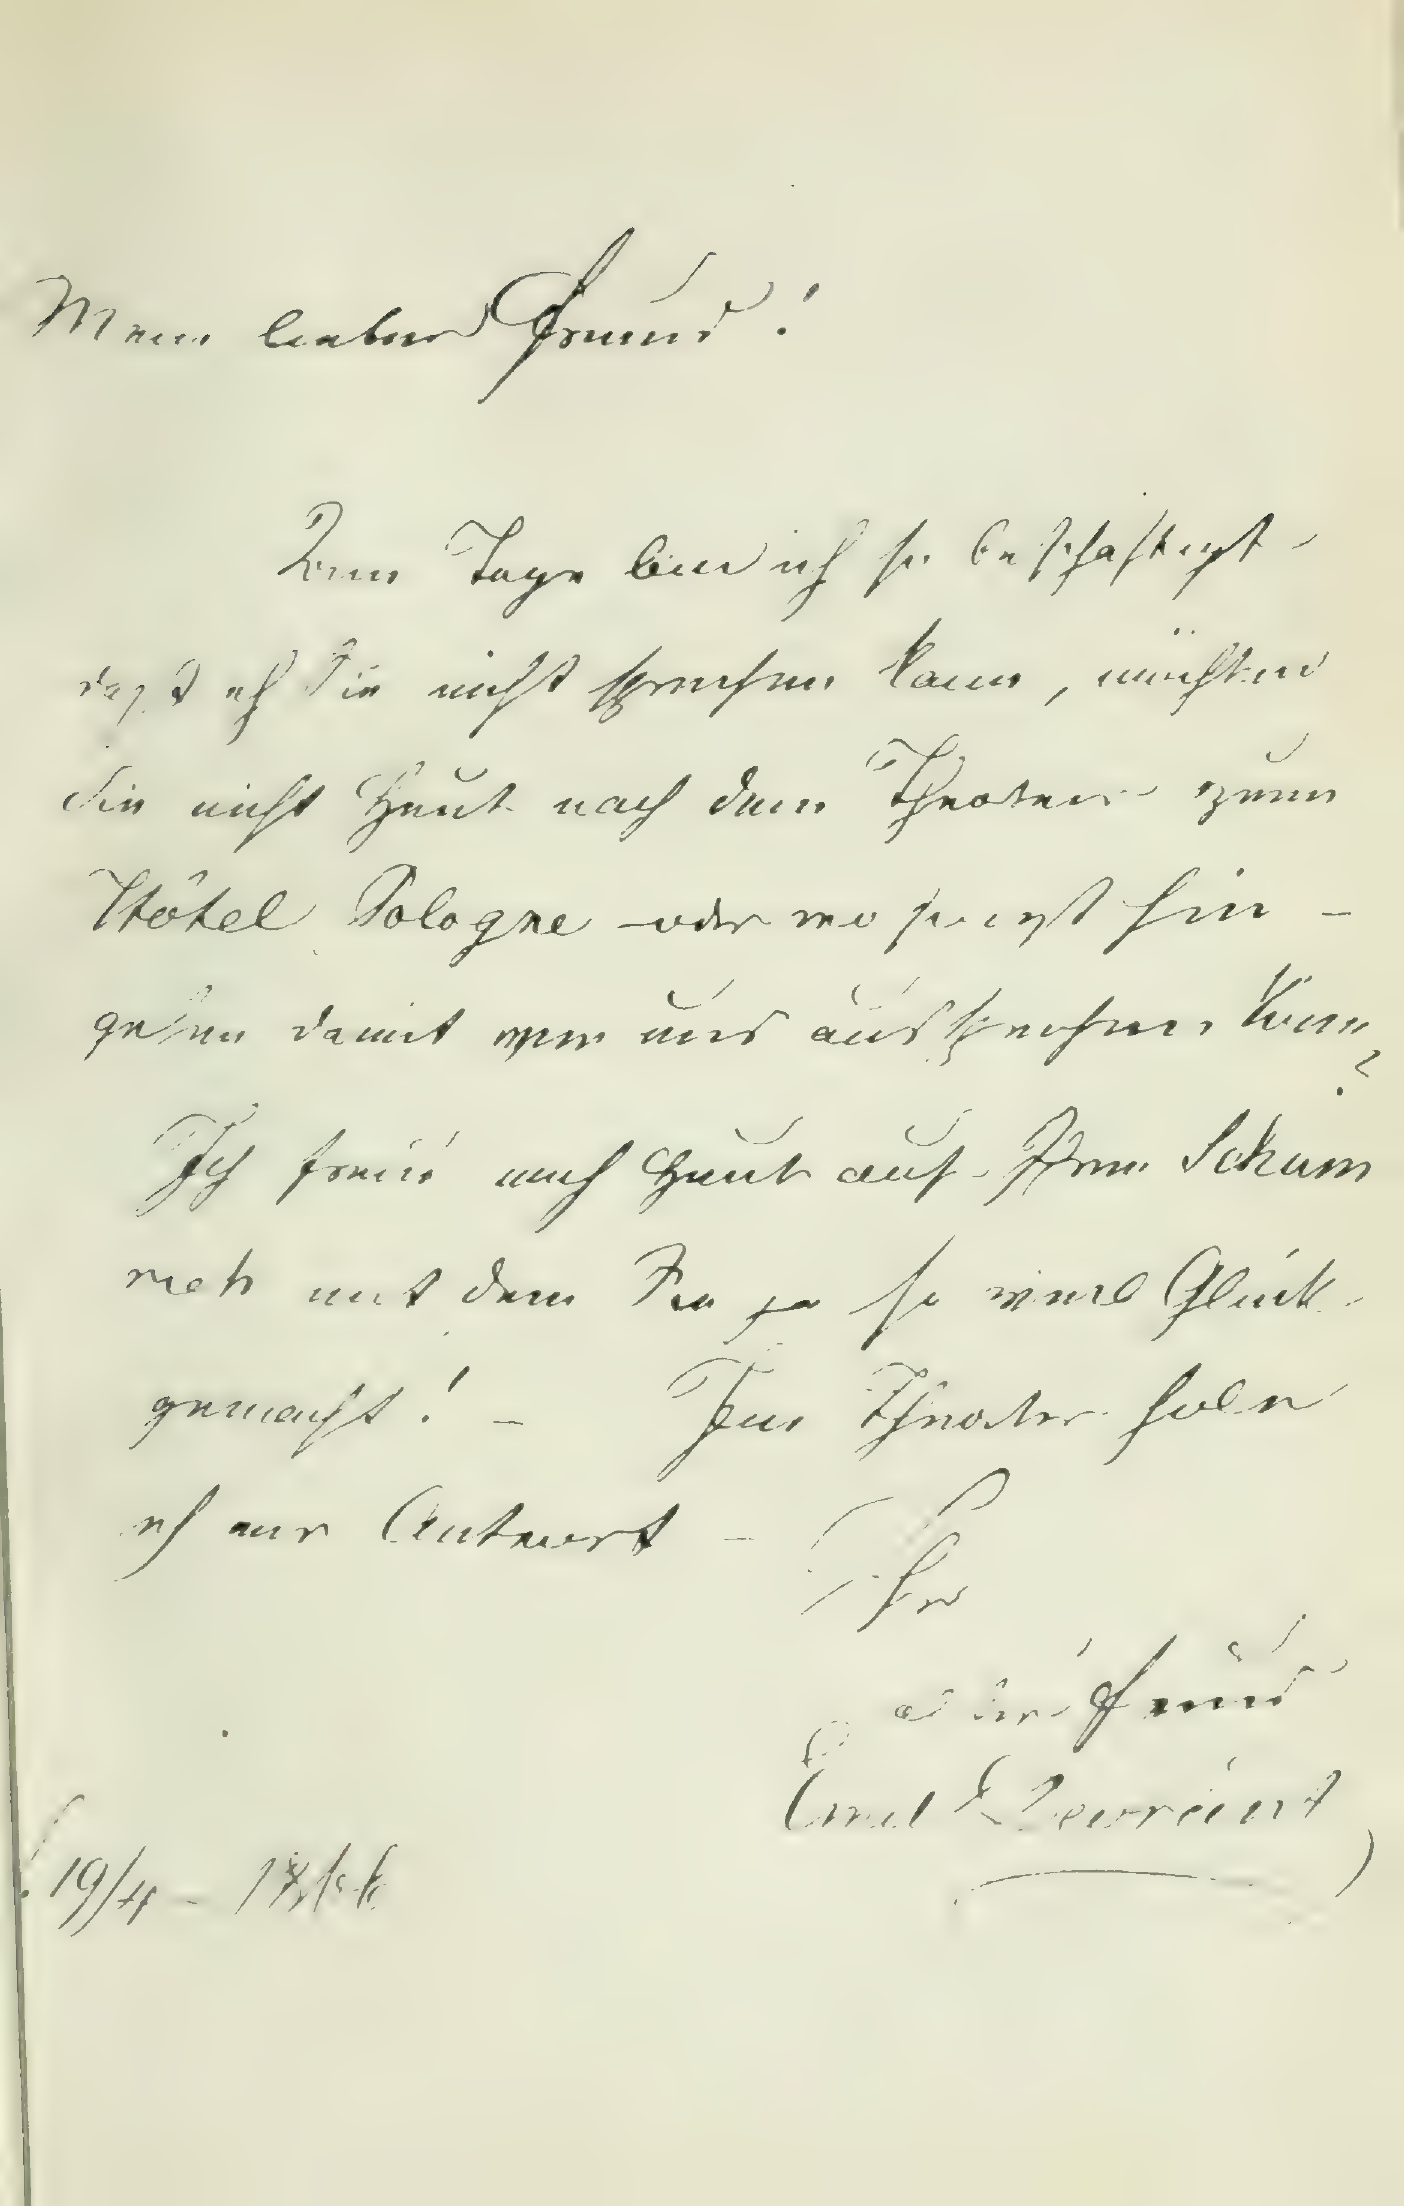 Mein lieber Freund!
Am Tage bin ich so beschäftigt
daß ich Sie nicht sprechen kann, möchten
Sie nicht Heut nach dem Theater zum
Hôtel Pologne oder wo sonst hin –
gehen damit wir uns aussprechen könn
?
Ich freue mich Heut auf Ihren Schum
rich mit dem Sie ja so viel Glück
gemacht! – Im Theater hole
ich mir Antwort –
Ihr
alter Freund
Emil Devrient
19/4 –